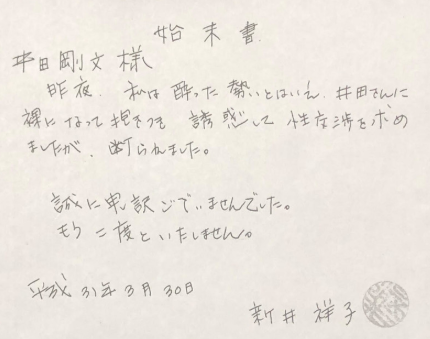 始末書
井田剛文様
昨夜、私は酔った勢いとはいえ、井田さんに
裸になって抱きつき誘惑して性交渉を求め
ましたが、断られました。
誠に申訳ございませんでした。
もう二度といたしません。
平成31年3月30日
新井祥子